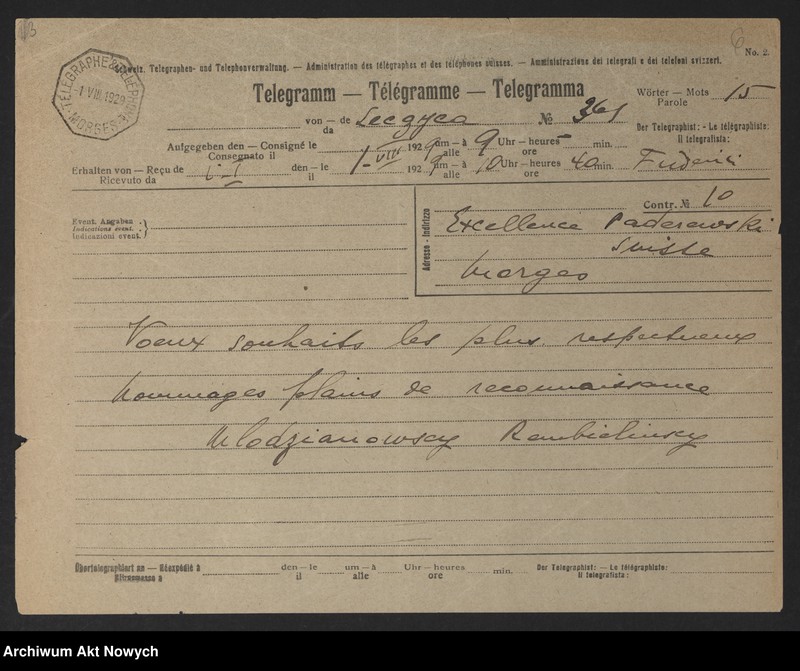 No. 2.
Schweiz. Telegraphen- und Telephonverwaltung. — Administration des télégraphes et des téléphones suisses. — Amministrazione dei telegrafi e dei telefoni svizzeri.
TÉLÉGRAPHE & TÉLÉPHONE
-1 VIII.1929
MORGES
Telegramm — Télégramme — Telegramma
Wörter — Mots 15
Parole
von — de Leczyca № 361
da
Der Telegraphist: - Le télégraphiste:
Il telegrafista:
Aufgegeben den — Consigné le 192 um — à 9 Uhr — heures min.
Consegnato il alle ore
Erhalten von — Reçu de den — le 1. VIII 1929 um — à 10 Uhr — heures 40 min.
Ricevuto da il alle ore
Contr. № 10
Event. Angaben
Indications évent.
Indicazioni event.
Adresse - Indirizzo
Excellence Paderewski
Suisse
Morges
Voeux souhaits les plus respectueux
hommages plains de reconnaissance
Mlodzianowscy Rembielinscy
Übertelegraphiert an — Réexpédié à den — le um — à Uhr — heures min. Der Telegraphist: — Le télégraphiste:
Ritrasmesso a il alle ore Il telegrafista:
Archiwum Akt Nowych